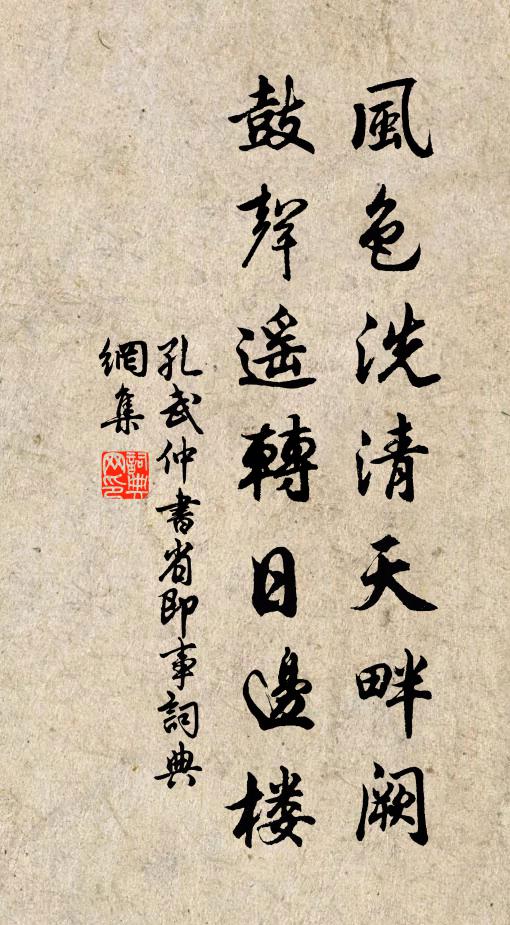 風色洗清天畔闕
鼓聲遥轉日邊楼
孔武仲書省即事詞典
網集
詞典網印